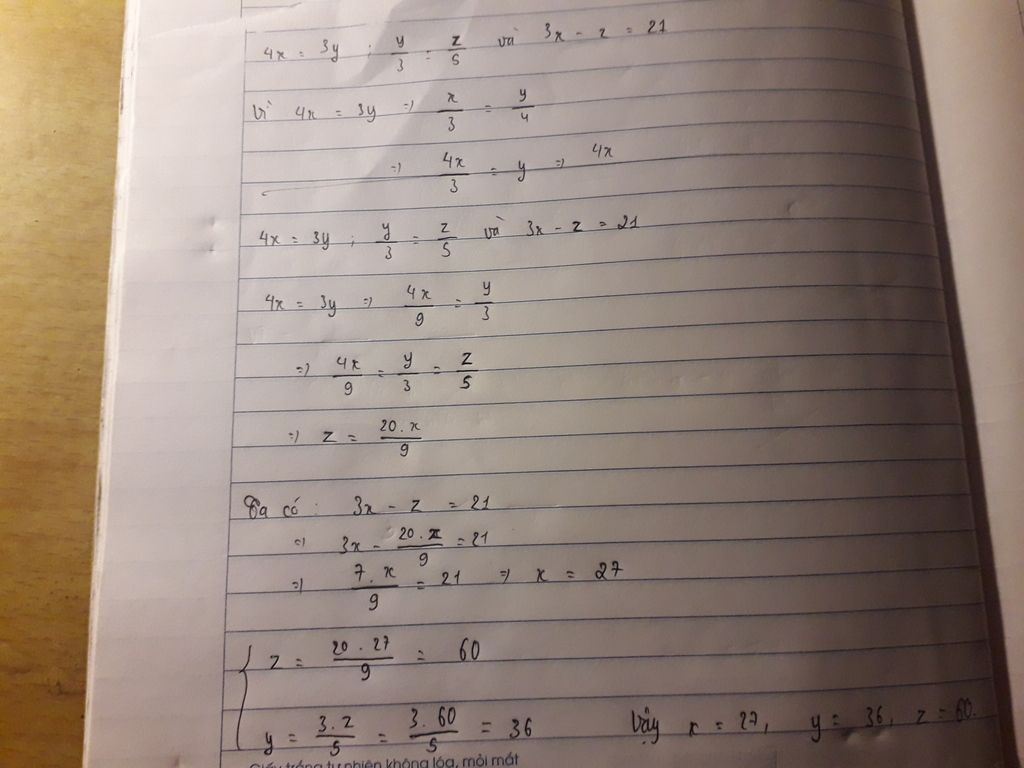 4x = 3y ; y/3 = z/5 và 3x - z = 21
Vì 4x = 3y => x/3 = y/4
=> 4x/3 = y => 4x
4x = 3y ; y/3 = z/5 và 3x - z = 21
4x = 3y => 4x/9 = y/3
=> 4x/9 = y/3 = z/5
=> z = 20.x/9
Ta có : 3x - z = 21
=> 3x - 20.x/9 = 21
=> 7.x/9 = 21 => x = 27
{ z = 20.27/9 = 60
y = 3.z/5 = 3.60/5 = 36 Vậy x = 27, y = 36, z = 60.
Giấy trắng tự nhiên không lóa, mỏi mắt